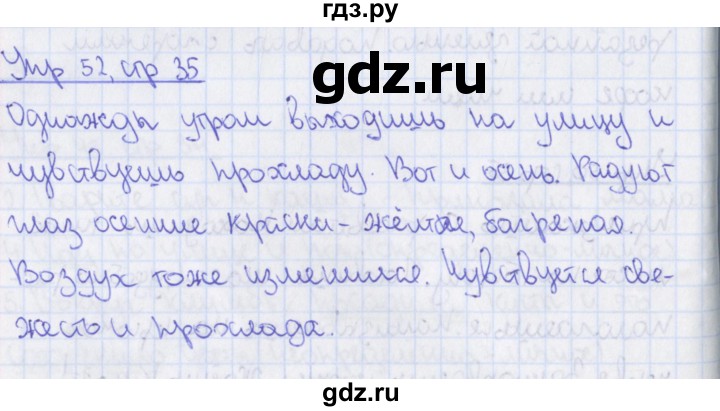 гдз.ру
Упр 52, стр 35
gdz.ru
Однажды утром выходишь на улицу и
чувствуешь прохладу. Вот и осень. Радуют
глаз осенние краски - жёлтая, багряная.
Воздух тоже изменился. Чувствуется све-
жесть и прохлада.
gdz.ru